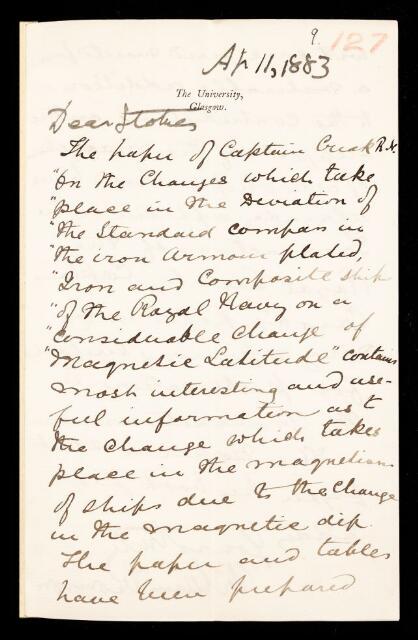 9. 127
Ap 11, 1883
The University,
Glasgow.
Dear Stokes
The paper of Captain Creak R.N.
"On the Changes which take
"place in the Deviation of
"the Standard compass in
"the iron Armour plated,
"Iron and Composite ship
"of the Royal Navy on a
"considerable change of
"Magnetic Latitude" contains
most interesting and use-
ful information as t
the change which takes
place in the magnetism
of ships due to the Change
in the magnetic dip.
The paper and tables
have been prepared